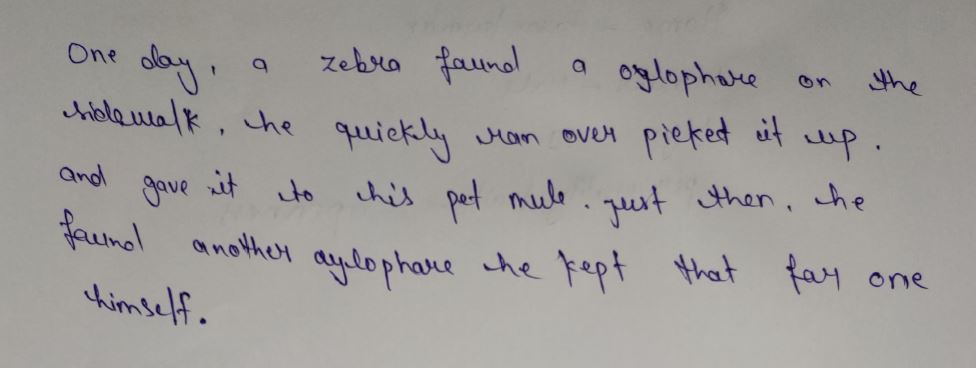 One day, a zebra faund a oglophare on the
sidewalk, he quickly ran over picket it up.
and gave it to his pet mule. just then, he
faund another aylophare he kept that far one
himself.